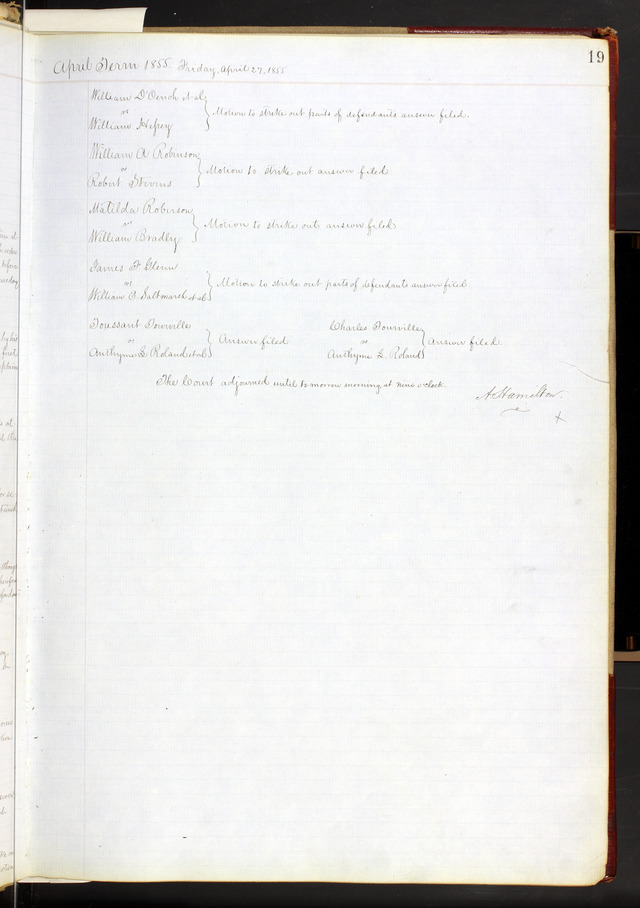 19
April Term 1855. Friday, April 27, 1855
William D'Oench et al
vs
William Hepery
Motion to strike out parts of defendants answer filed.
William A Robinson
vs
Robert Stevens
Motion to strike out answer filed
Matilda Roberson
vs
William Bradley
Motion to strike out answer filed
James F Glenn
vs
William P. Saltmarsh et al
Motion to strike out parts of defendants answer filed
Toussant Tourville
vs
Anthyme L Roland et al
Answer filed
Charles Tourville
vs
Anthyme L. Roland
Answer filed
The Court adjourned until tomorrow morning at nine o'clock.
A Hamilton.